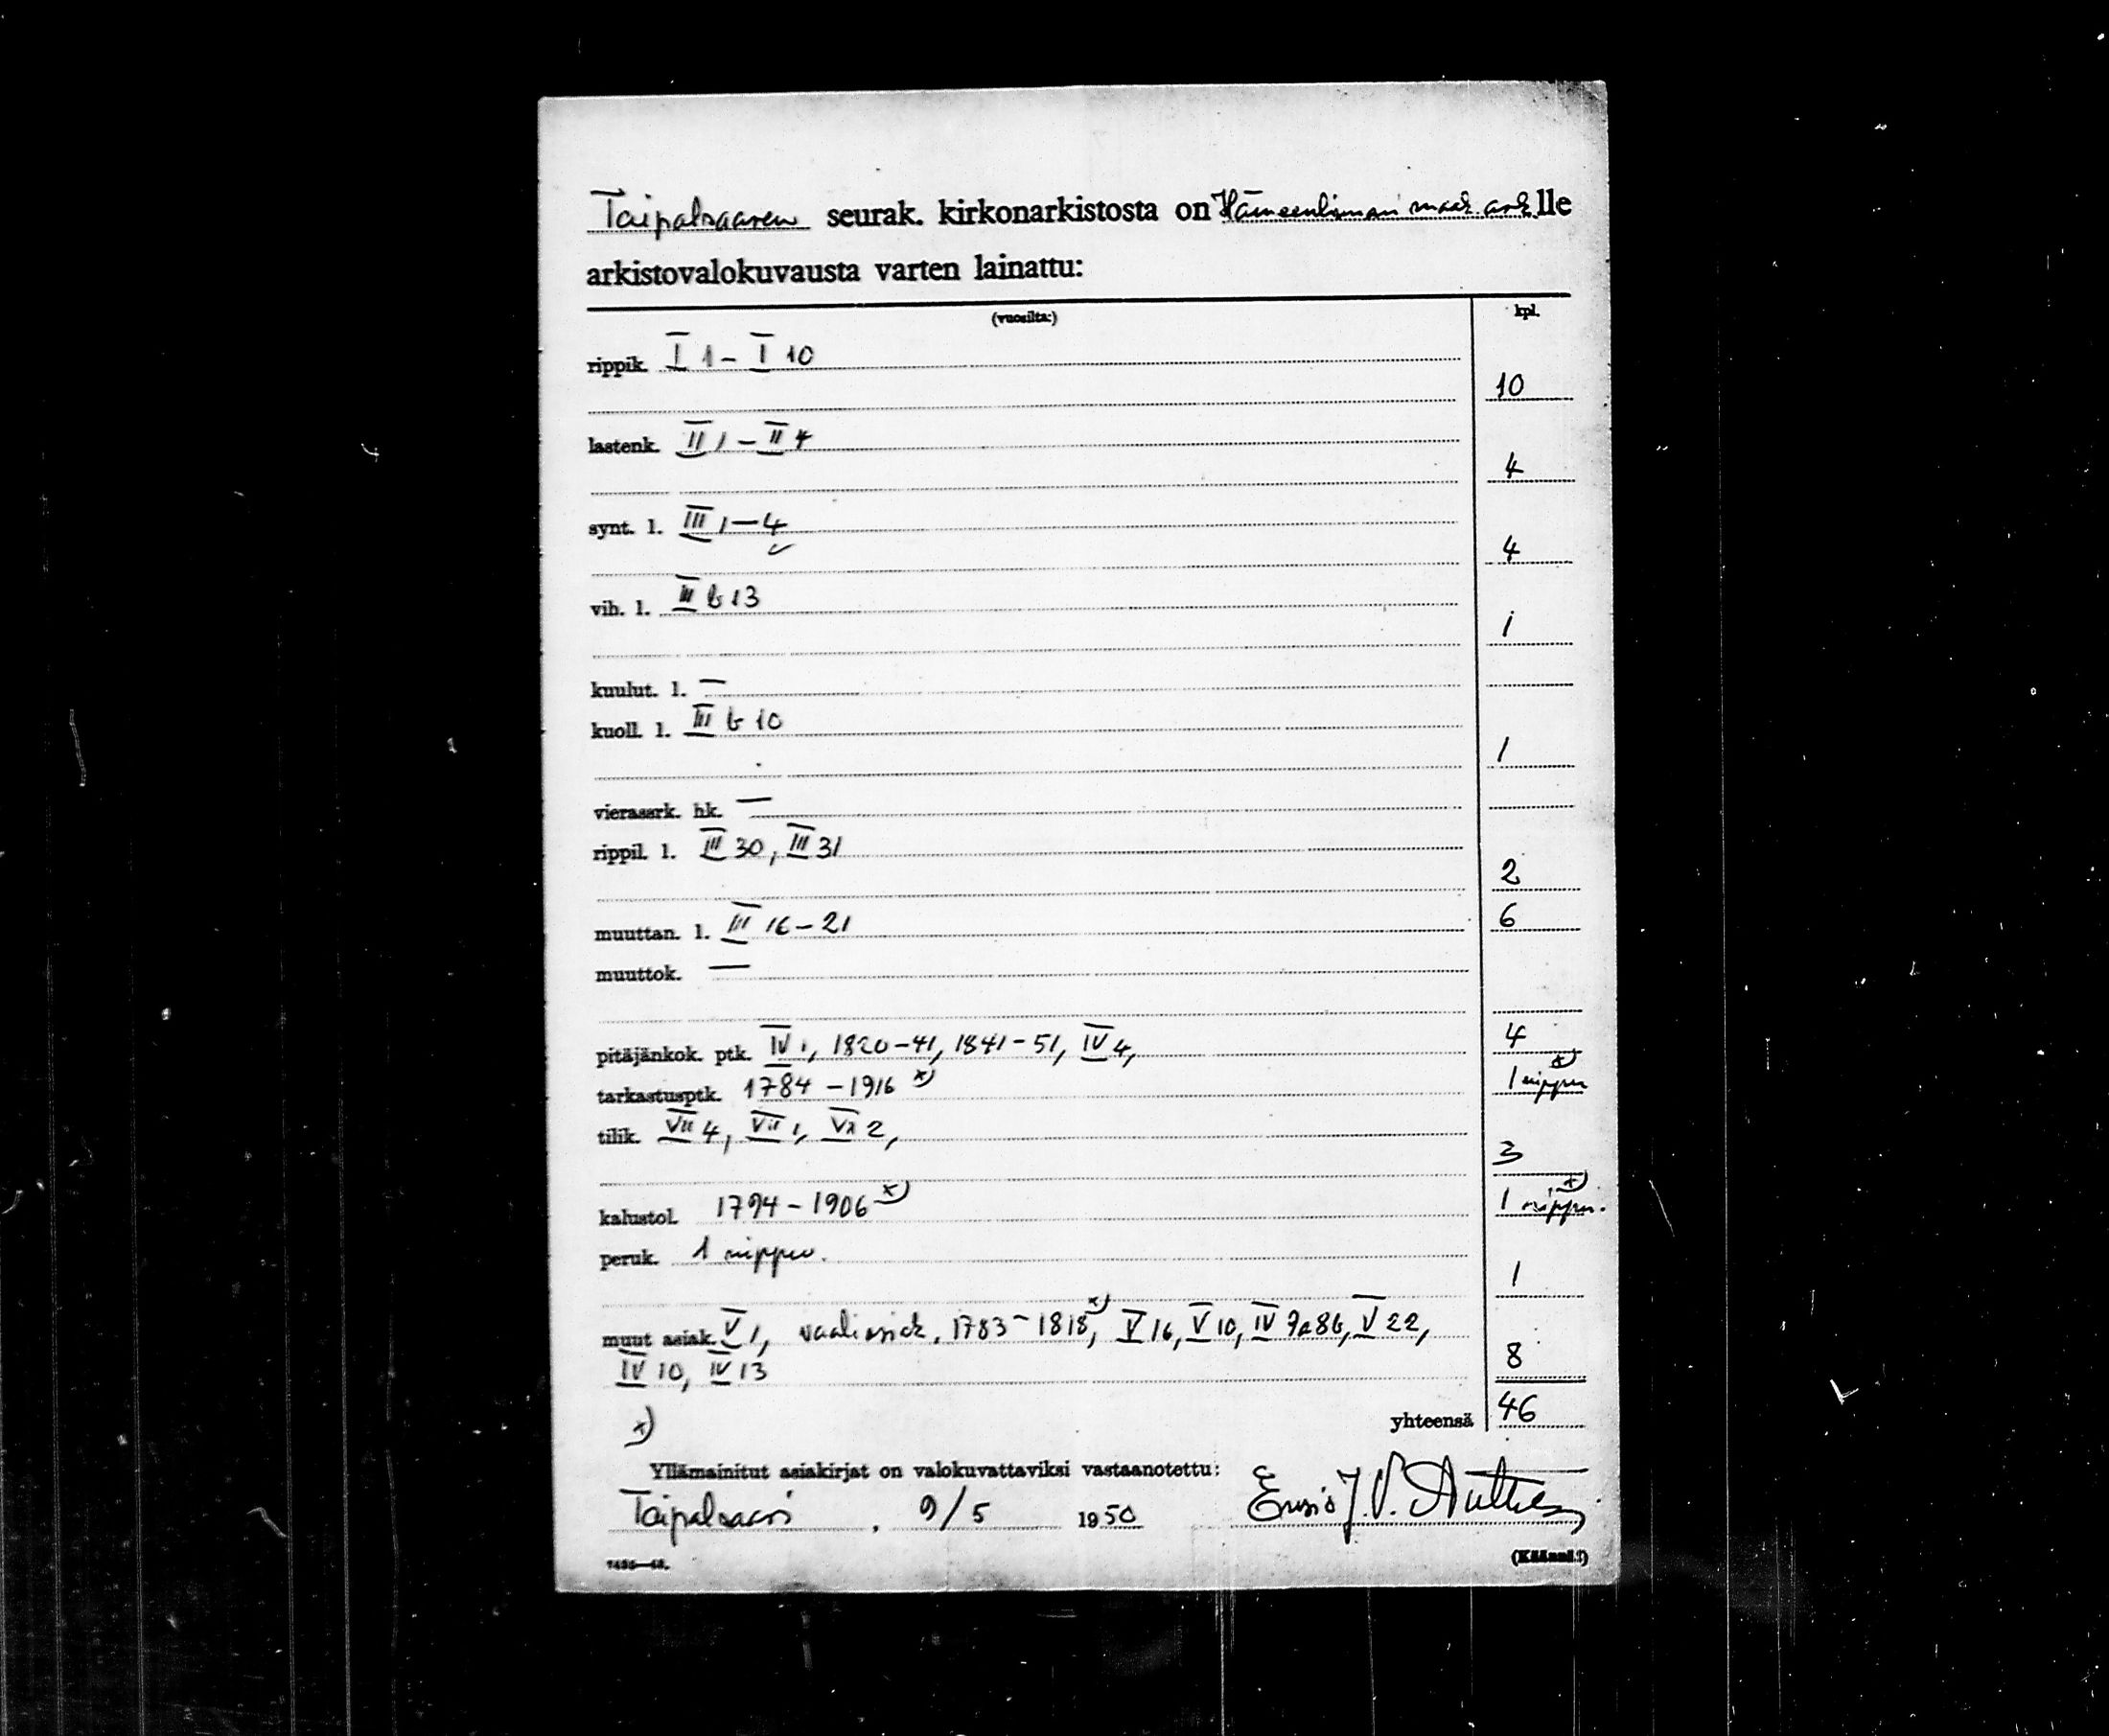 Taipalsaaren seurak. kirkonarkistosta on Hämeenlinnan maak. ark. lle
arkistovalokuvausta varten lainattu:
(vuosilta:) kpl.
rippik. I 1 - I 10
10
lastenk. II 1 - II 4
4
synt. l. III 1 - 4
4
vih. l. III b 13
1
kuulut. l. —
kuoll. l. III b 10
1
vierassrk. hk. —
rippil. l. III 30, III 31
2
muuttan. l. III 16 - 21 6
muuttok. —
pitäjänkok. ptk. IV 1, 1820-41, 1841-51, IV 4, 4
tarkastusptk. 1784 - 1916 x) 1 nippu x)
tilik. VII 4, VII 1, 2,
3
kalustol. 1794 - 1906 x) 1 nippu. x)
peruk. 1 nippu.
1
muut asiak. V 1, vaaliasiak. 1783 - 1818 x), V 16, V 10, IV 8b, V 22,
IV 10, IV 13 8
x) yhteensä 46
Yllämainitut asiakirjat on valokuvattaviksi vastaanotettu:
Taipalsaari, 9/5 1950 Ensio J. V.
(Käännä!)